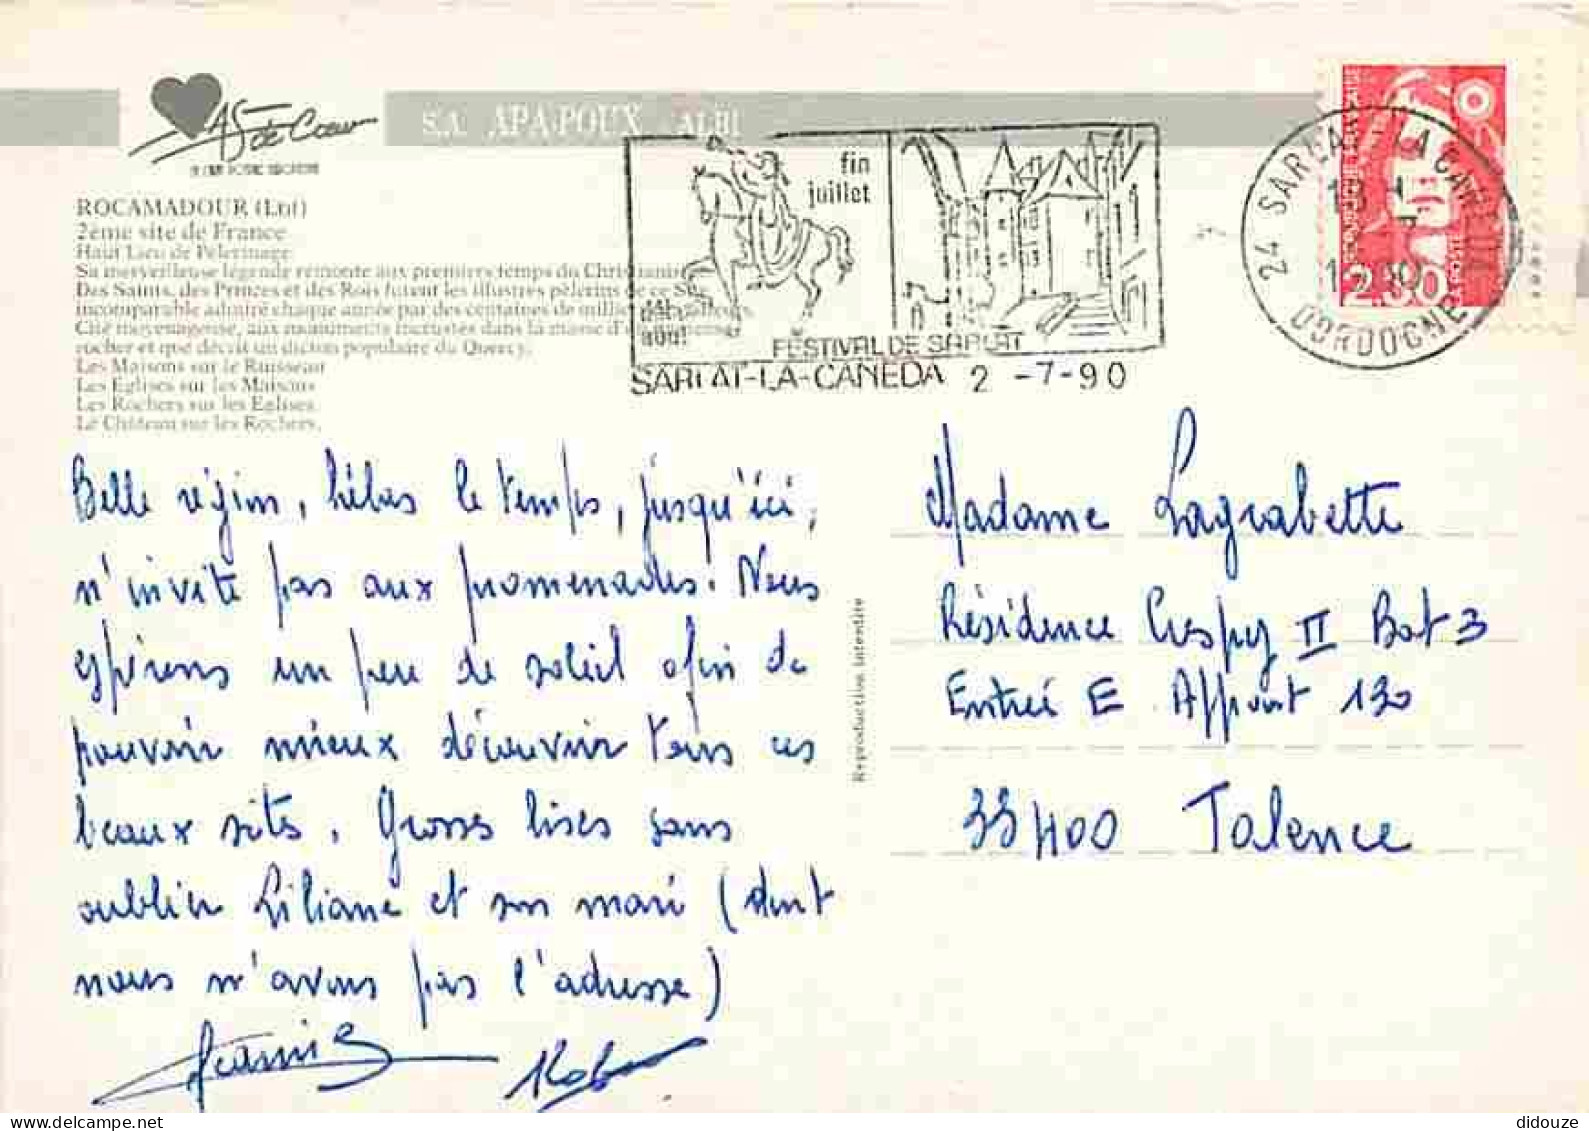 AS de Cœur
S.A. APA-POUX - ALBI
ROCAMADOUR (Lot)
2ème site de France
Haut Lieu de Pèlerinage
Sa merveilleuse légende remonte aux premiers temps du
Des Saints, des Princes et des Rois furent les illustres pèlerins de ce
incomparable admiré chaque année par des centaines de
Cité moyenageuse, aux monuments incrustés dans la masse
rocher et que décrit un dicton populaire du Quercy.
Les Maisons sur le Ruisseau
Les Eglises sur les Maisons
Les Rochers sur les Eglises
Le Château sur les Rochers.
fin
juillet
août
FESTIVAL DE SARLAT
SARLAT-LA-CANEDA 2 -7-90
24 SARLAT-LA CANEDA
DORDOGNE
2,30
Belle région, hélas le temps, jusqu'ici,
n'invite pas aux promenades. Nous
espérons un peu de soleil afin de
pouvoir mieux découvrir tous ces
beaux sites. Grosses bises sans
oublier Liliane et son mari (dont
nous n'avons pas l'adresse)
Reproduction interdite
Madame Lagrabette
Résidence Crespy II Bat 3
Entrée E Appart 130
33400 Talence
didouze